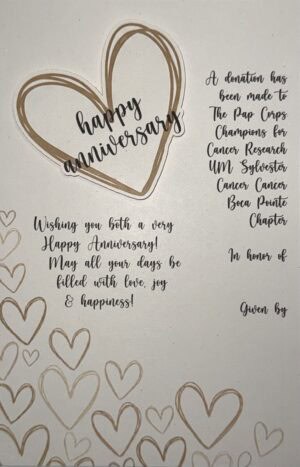 happy
anniversary
Wishing you both a very
Happy Anniversary!
May all your days be
filled with love, joy
& happiness!
A donation has
been made to
The Pap Corps
Champions for
Cancer Research
UM Sylvester
Cancer Cancer
Boca Pointe
Chapter
In honor of
Given by